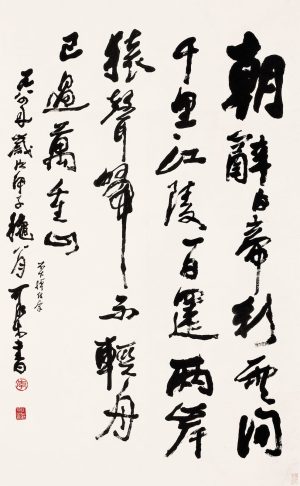 朝辭白帝彩雲間
千里江陵一日還兩岸
猿聲啼不輕舟
已過萬重山
一九八四年歲次甲子穐八月可染書